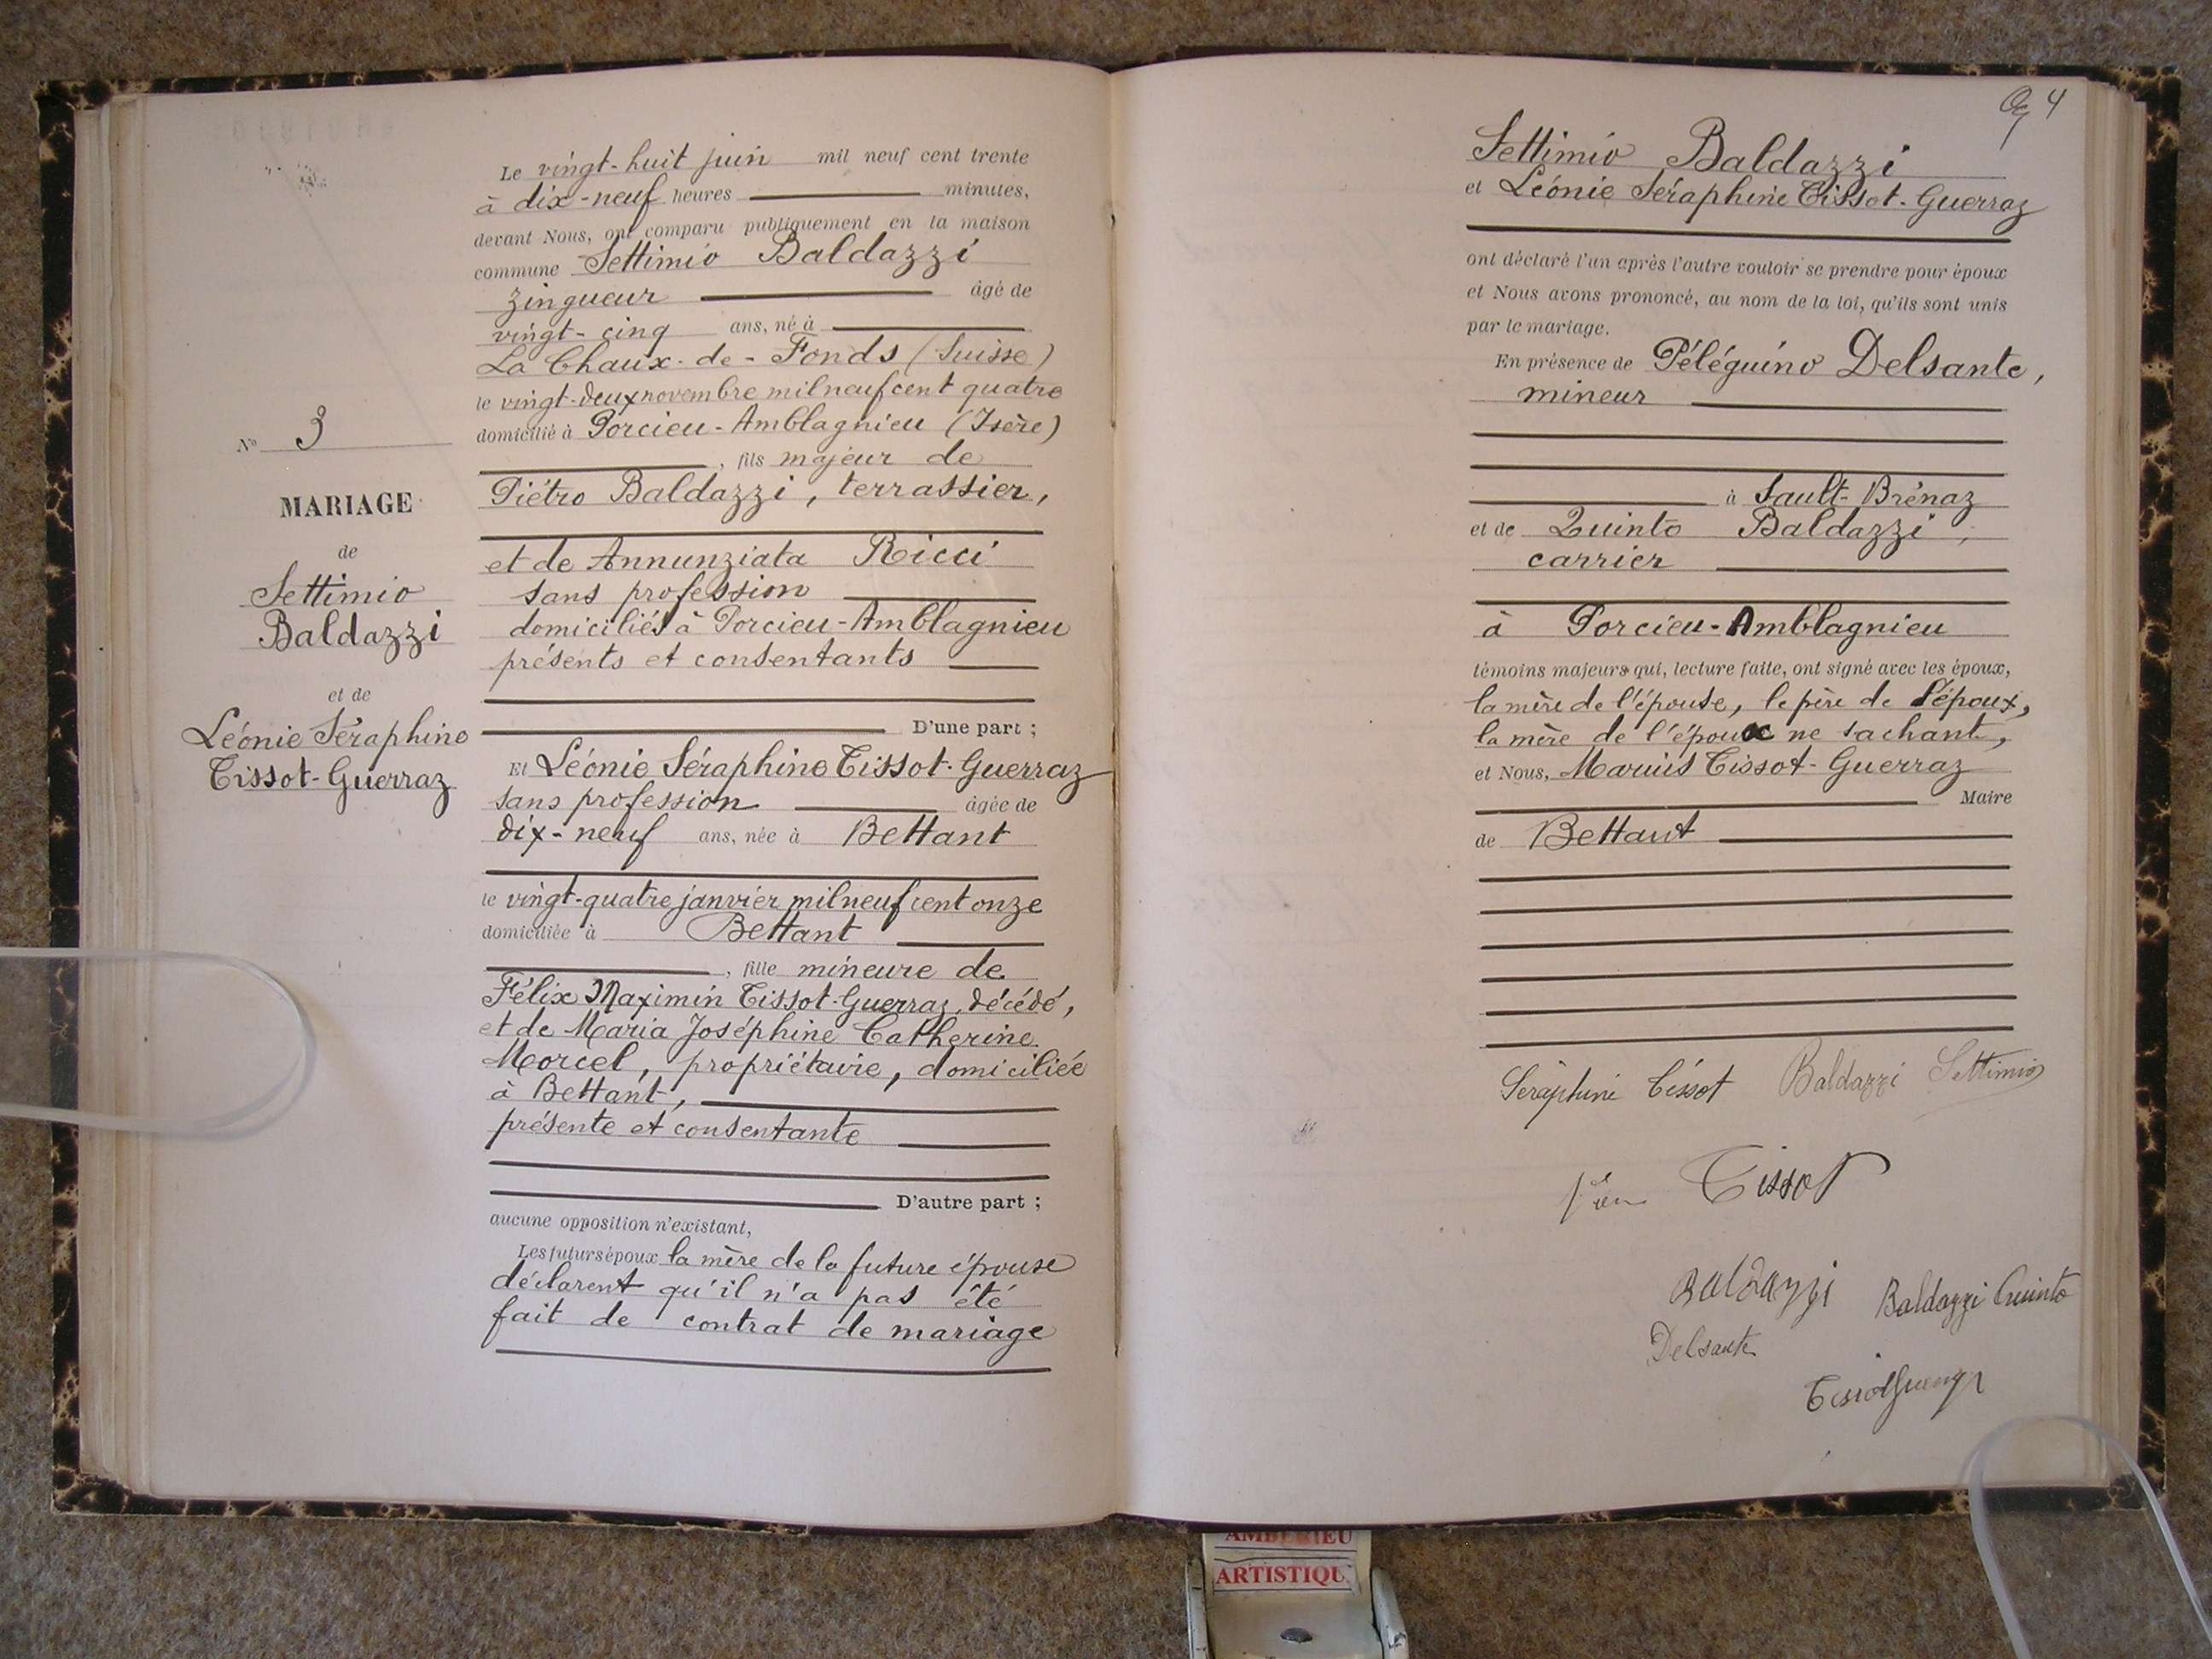 Le vingt-huit juin mil neuf cent trente
à dix-neuf heures minutes,
devant Nous, ont comparu publiquement en la maison
commune Settimio Baldazzi
zingueur âgé de
vingt-cinq ans, né à
La Chaux-de-Fonds (Suisse)
le vingt-deux novembre mil neuf cent quatre
domicilié à Porcieu-Amblagnieu (Isère)
, fils majeur de
Piétro Baldazzi, terrassier,
et de Annunziata Ricci
sans profession
domiciliés à Porcieu-Amblagnieu
présents et consentants
D'une part ;
Et Léonie Séraphine Tissot-Guerraz
sans profession âgée de
dix-neuf ans, née à Bettant
le vingt-quatre janvier mil neuf cent onze
domiciliée à Bettant
, fille mineure de
Félix Maximin Tissot-Guerraz, décédé,
et de Maria Joséphine Catherine
Morcel, propriétaire, domiciliée
à Bettant,
présente et consentante
D'autre part ;
aucune opposition n'existant,
Les futurs époux la mère de la future épouse
déclarent qu'il n'a pas été
fait de contrat de mariage
N° 3
MARIAGE
de
Settimio
Baldazzi
et de
Léonie Séraphine
Tissot-Guerraz
4
Settimio Baldazzi
et Léonie Séraphine Tissot-Guerraz
ont déclaré l'un après l'autre vouloir se prendre pour époux
et Nous avons prononcé, au nom de la loi, qu'ils sont unis
par le mariage.
En présence de Péléguino Delsante,
mineur
à Sault-Brénaz
et de Quinto Baldazzi,
carrier
à Porcieu-Amblagnieu
témoins majeurs qui, lecture faite, ont signé avec les époux,
la mère de l'épouse, le père de l'époux,
la mère de l'époux ne sachant,
et Nous, Marius Tissot-Guerraz
Maire
de Bettant
Séraphine Tissot Baldazzi Settimio
Tissot
Baldazzi Baldazzi Quinto
Delsante
AMBERIEU
ARTISTIQU